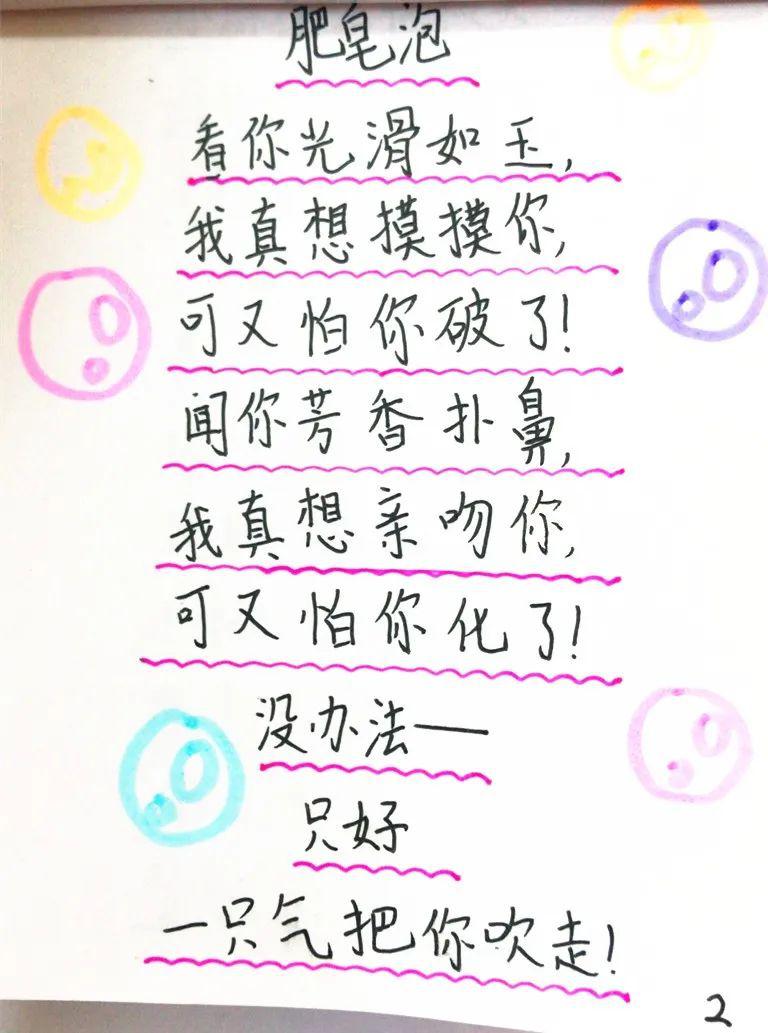 肥皂泡
看你光滑如玉,
我真想摸摸你,
可又怕你破了!
闻你芳香扑鼻,
我真想亲吻你,
可又怕你化了!
没办法——
只好
一只气把你吹走!
2